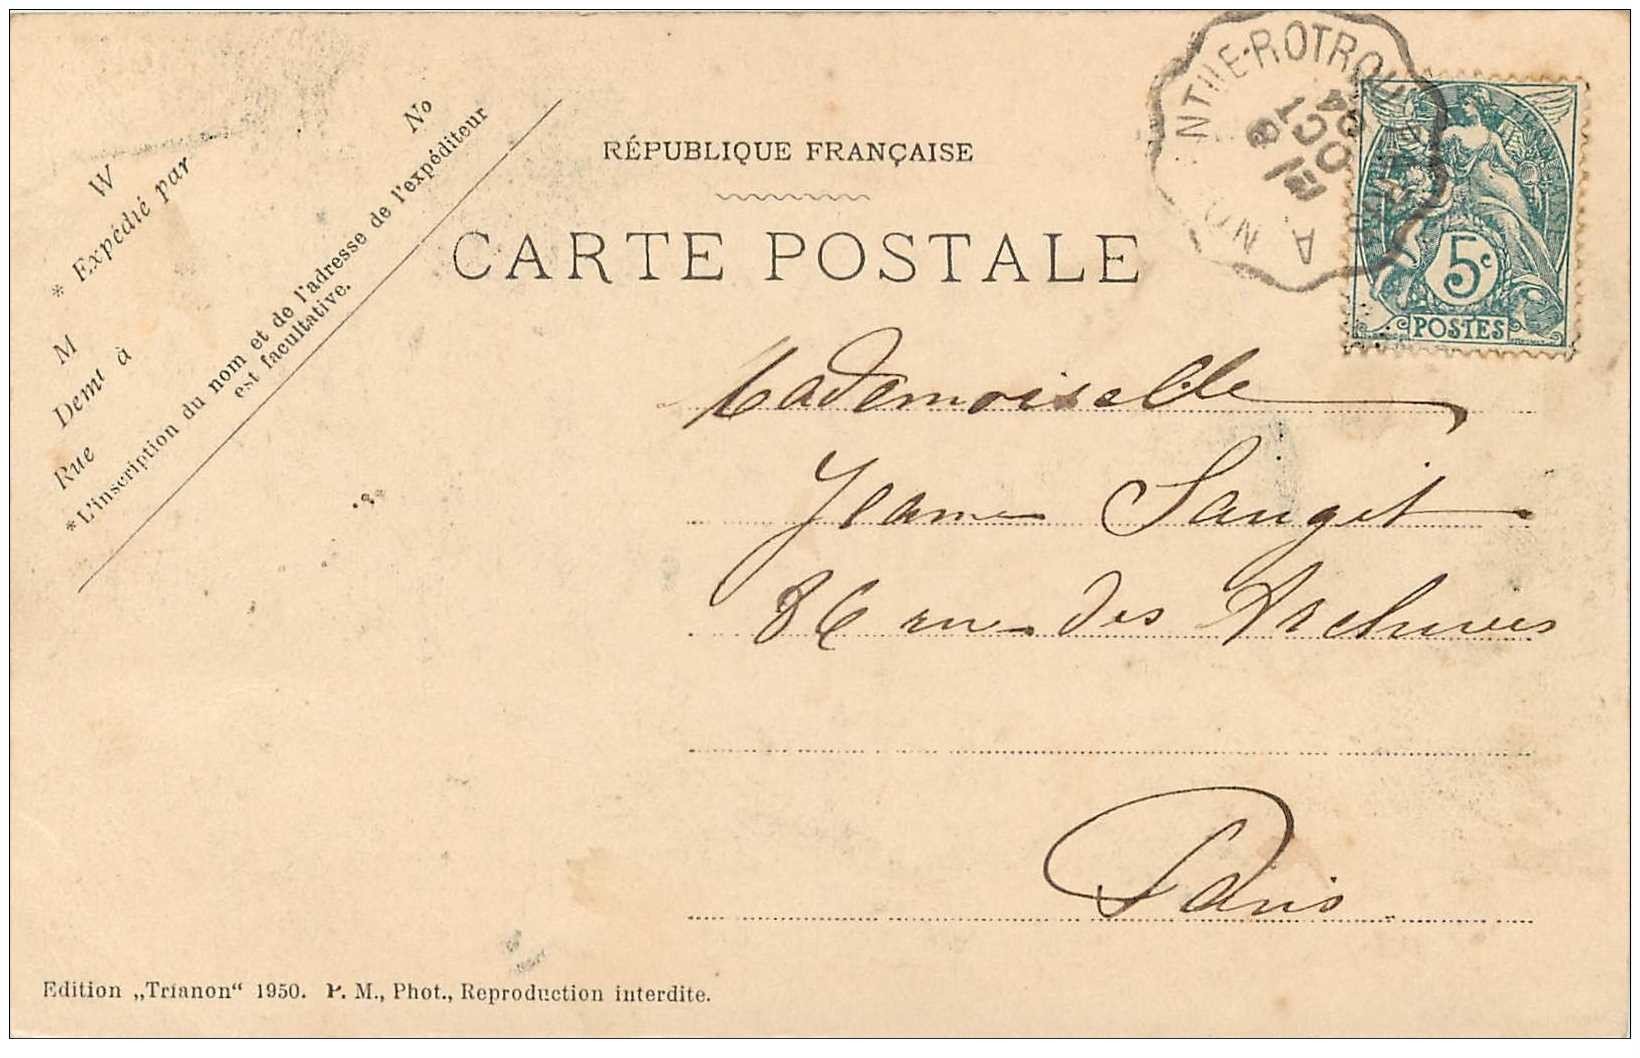 RÉPUBLIQUE FRANÇAISE
CARTE POSTALE
W No
* Expédié par
M
Demt à
Rue
*L'inscription du nom et de l'adresse de l'expéditeur
est facultative.
NT LE-ROTROU
A. NO
OCT
04
5c
POSTES
Mademoiselle
Jeanne Sauget
86 rue des Archives
Paris
Edition „Trianon“ 1950. P. M., Phot., Reproduction interdite.